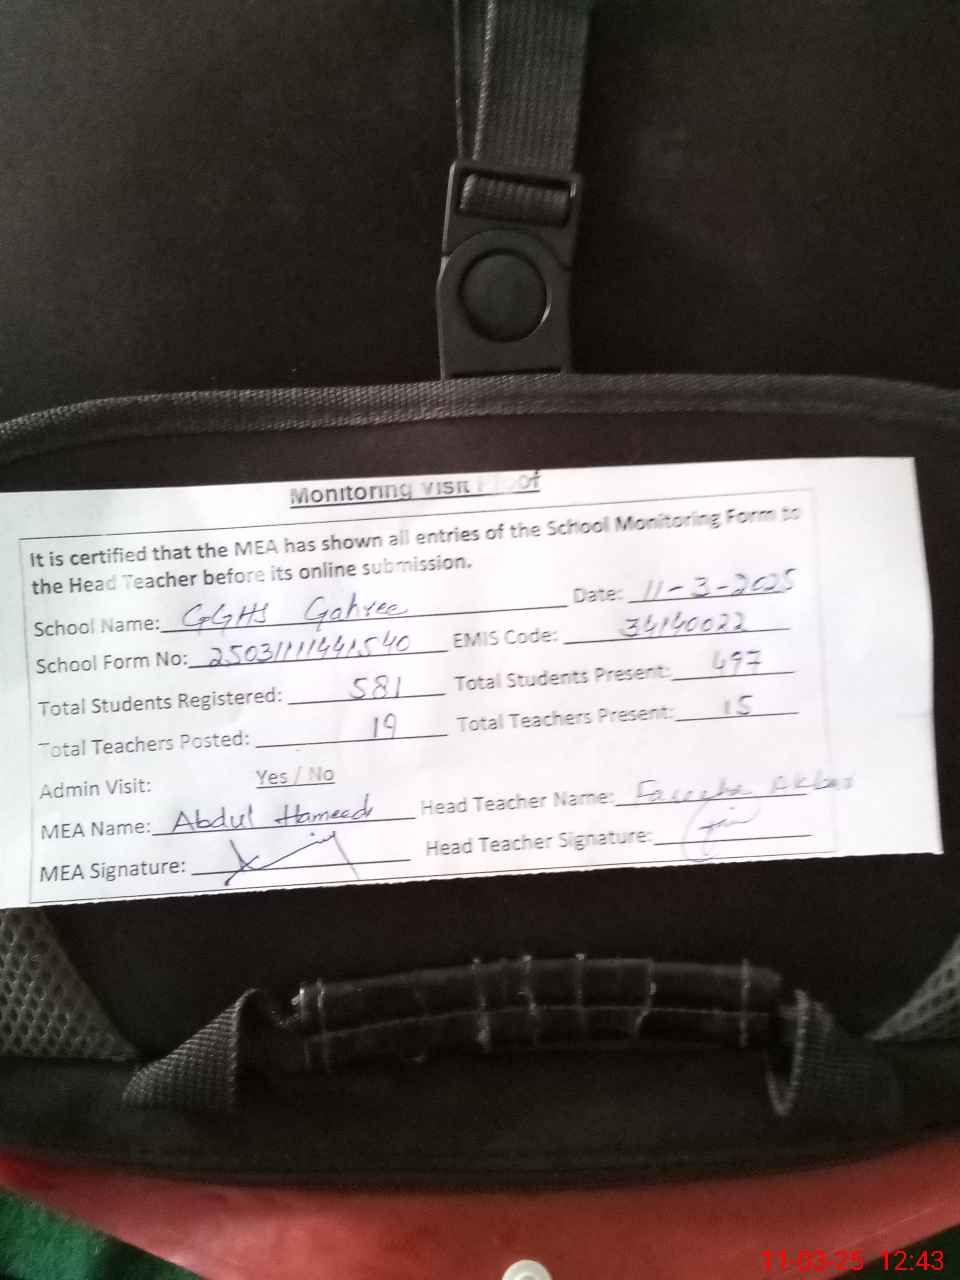 Monitoring Visit Proof
It is certified that the MEA has shown all entries of the School Monitoring Form to
the Head Teacher before its online submission.
School Name: GGHS Gahree Date: 11-3-2025
School Form No: 25031111441540 EMIS Code: 34140022
Total Students Registered: 581 Total Students Present: 497
Total Teachers Posted: 19 Total Teachers Present: 15
Admin Visit: Yes / No
MEA Name: Abdul Hameed Head Teacher Name: Akbar
MEA Signature: Head Teacher Signature:
11-03-25 12:43